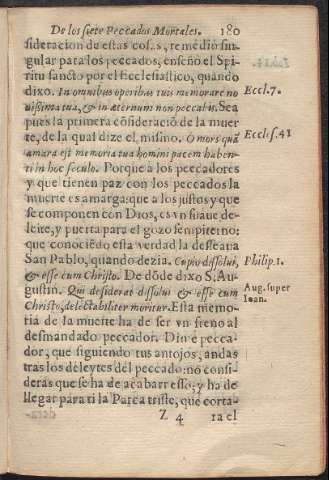 De los siete Peccados Mortales. 180
sideracion de estas cosas, remedio sin-
gular para los peccados, enseño el Spi-
ritu sancto por el Ecclesiastico, quando
dixo. In omnibus operibus tuis memorare no
uissima tua, & in æternum non peccabis. Sea
pues la primera cõsideració de la muer
te, de la qual dize el mismo. O mors quã
amara est memoria tua homini pacem haben-
ti in hoc seculo. Porque a los peccadores
y que tienen paz con los peccados la
muerte es amarga: que a los justos y que
se componen con Dios, es vn suaue de-
leite, y puerta para el gozo sempiterno:
que conociẽdo esta verdad la desseaua
San Pablo, quando dezia. Cupio dissolui,
& esse cum Christo. De dõde dixo S. Au-
gustin. Qui desiderat dissolui & esse cum
Christo, delectabiliter moritur. Esta memo-
ria de la muerte ha de ser vn freno al
desmandado peccador. Di ò pecca-
dor, que siguiendo tus antojos, andas
tras los deleytes del peccado: no consi-
deras que se ha de acabar esso; y ha de
llegar para ti la Parca triste, que corta-
Z 4 ra el
Eccl. 7.
Eccles. 41
Philip. 1.
Aug. super
Ioan.